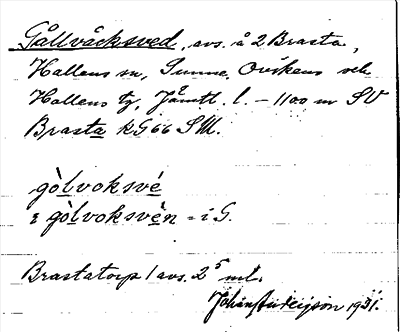 Gållvåcksved, avs. å 2 Brasta,
Hallens sn, Sunne, Ovikens och
Hallens tg, Jämtl. l. – 1100 m SV
Brasta kG66 SM.
gòlvoksvé
i gòlvoksvèn = i G.
Brastatorp 1 avs. 2⁵ mtl.
Johan Anderson 1931.